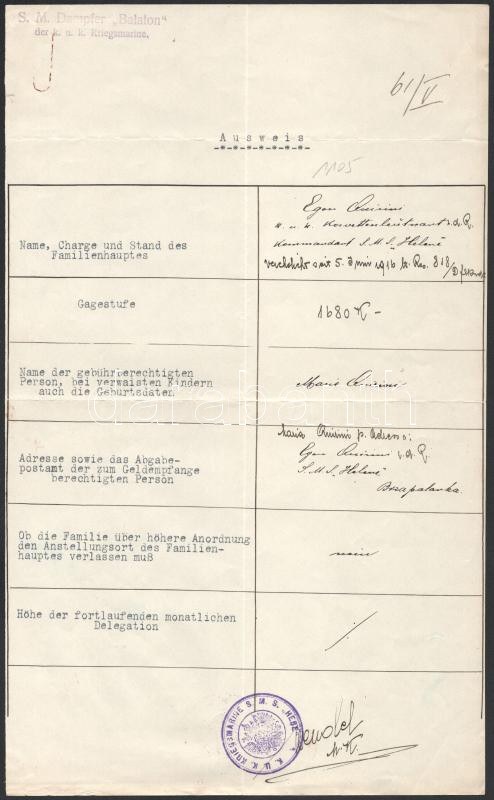 S. M. Dampfer „Balaton"
der k. u. k. Kriegsmarine.
61/V
Ausweis
1105
Name, Charge und Stand des
Familienhauptes
Egon Quirini
k. u. k. Korvettenleutnant i. d. R.
Kommandant S.M.S. Helene
verehelicht seit 5. Juni 1916 Res. 818/
Gagestufe
1680 K -
Name der gebührberechtigten
Person, bei verwaisten Kindern
auch die Geburtsdaten
Maria Quirini
Adresse sowie das Abgabe-
postamt der zum Geldempfange
berechtigten Person
Maria Quirini p. Adresse:
Egon Quirini i. d. R.
S.M.S. Helene
Bacapalanka
Ob die Familie über höhere Anordnung
den Anstellungsort des Familien-
hauptes verlassen muß
nein
Höhe der fortlaufenden monatlichen
Delegation
/.
K. U. K. KRIEGSMARINE S. M. S.
darabanth